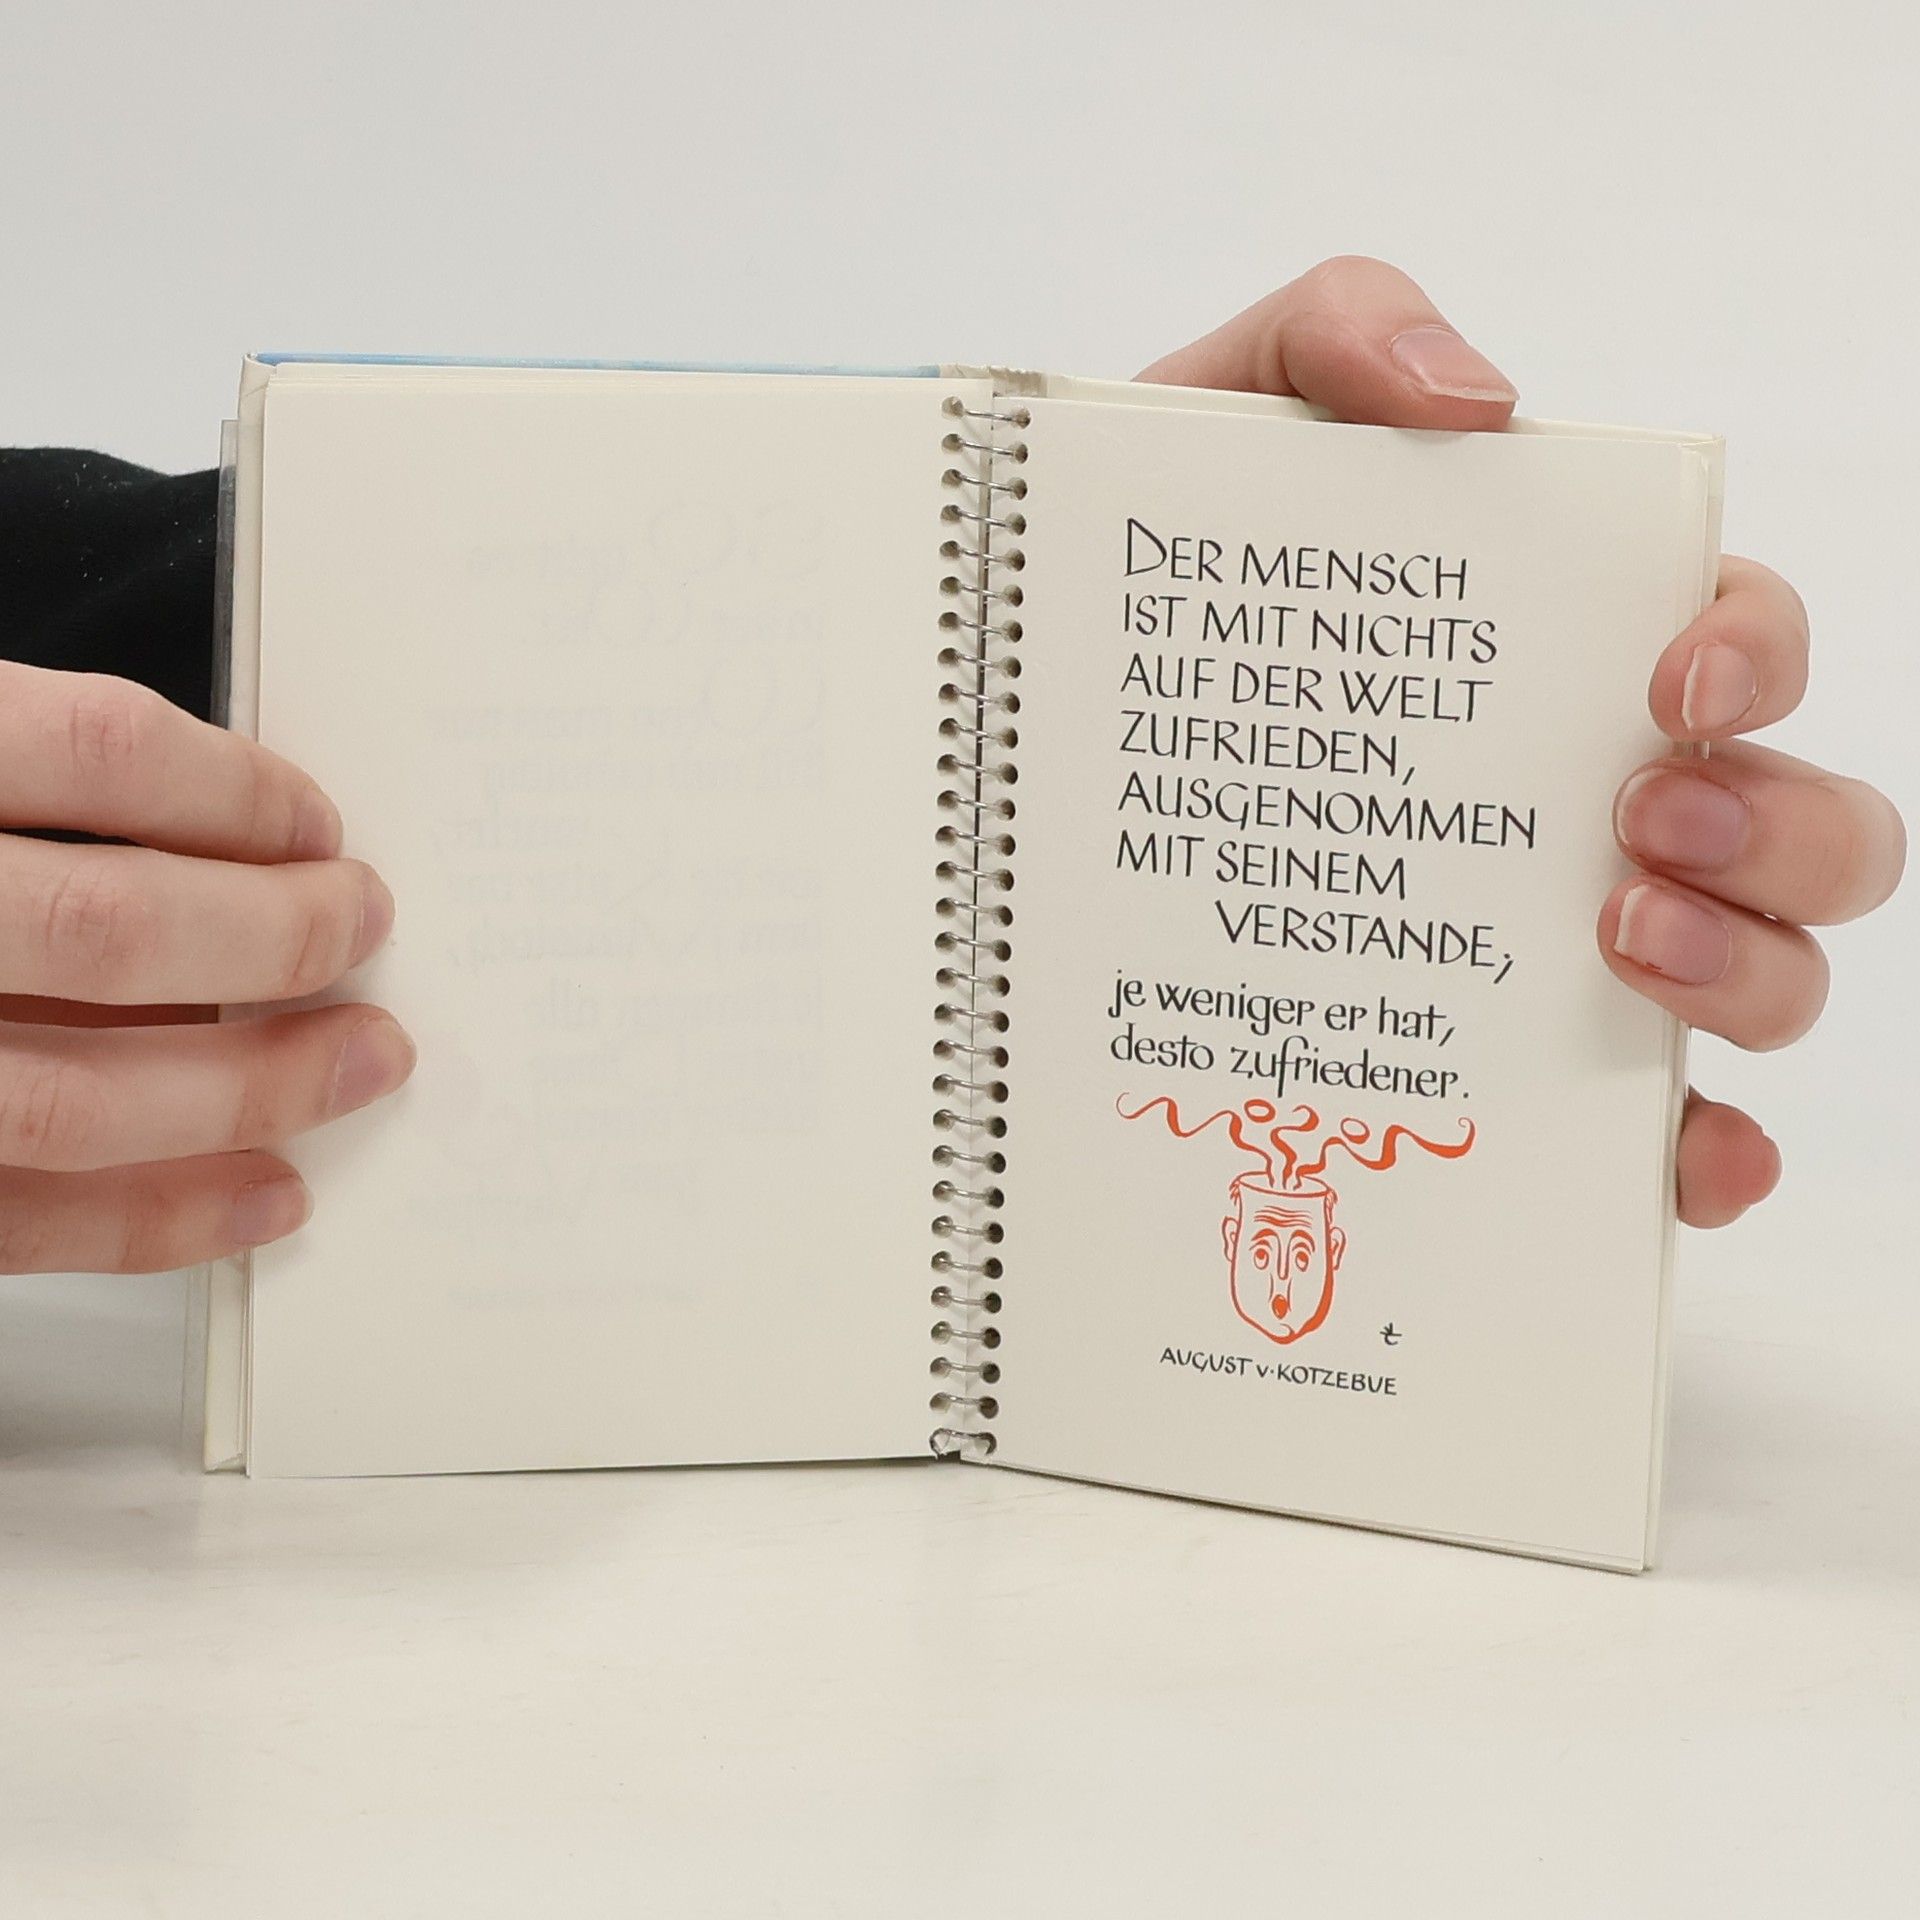 DER MENSCH
IST MIT NICHTS
AUF DER WELT
ZUFRIEDEN,
AUSGENOMMEN
MIT SEINEM
VERSTANDE;
je weniger er hat,
desto zufriedener.
AUGUST v. KOTZEBUE